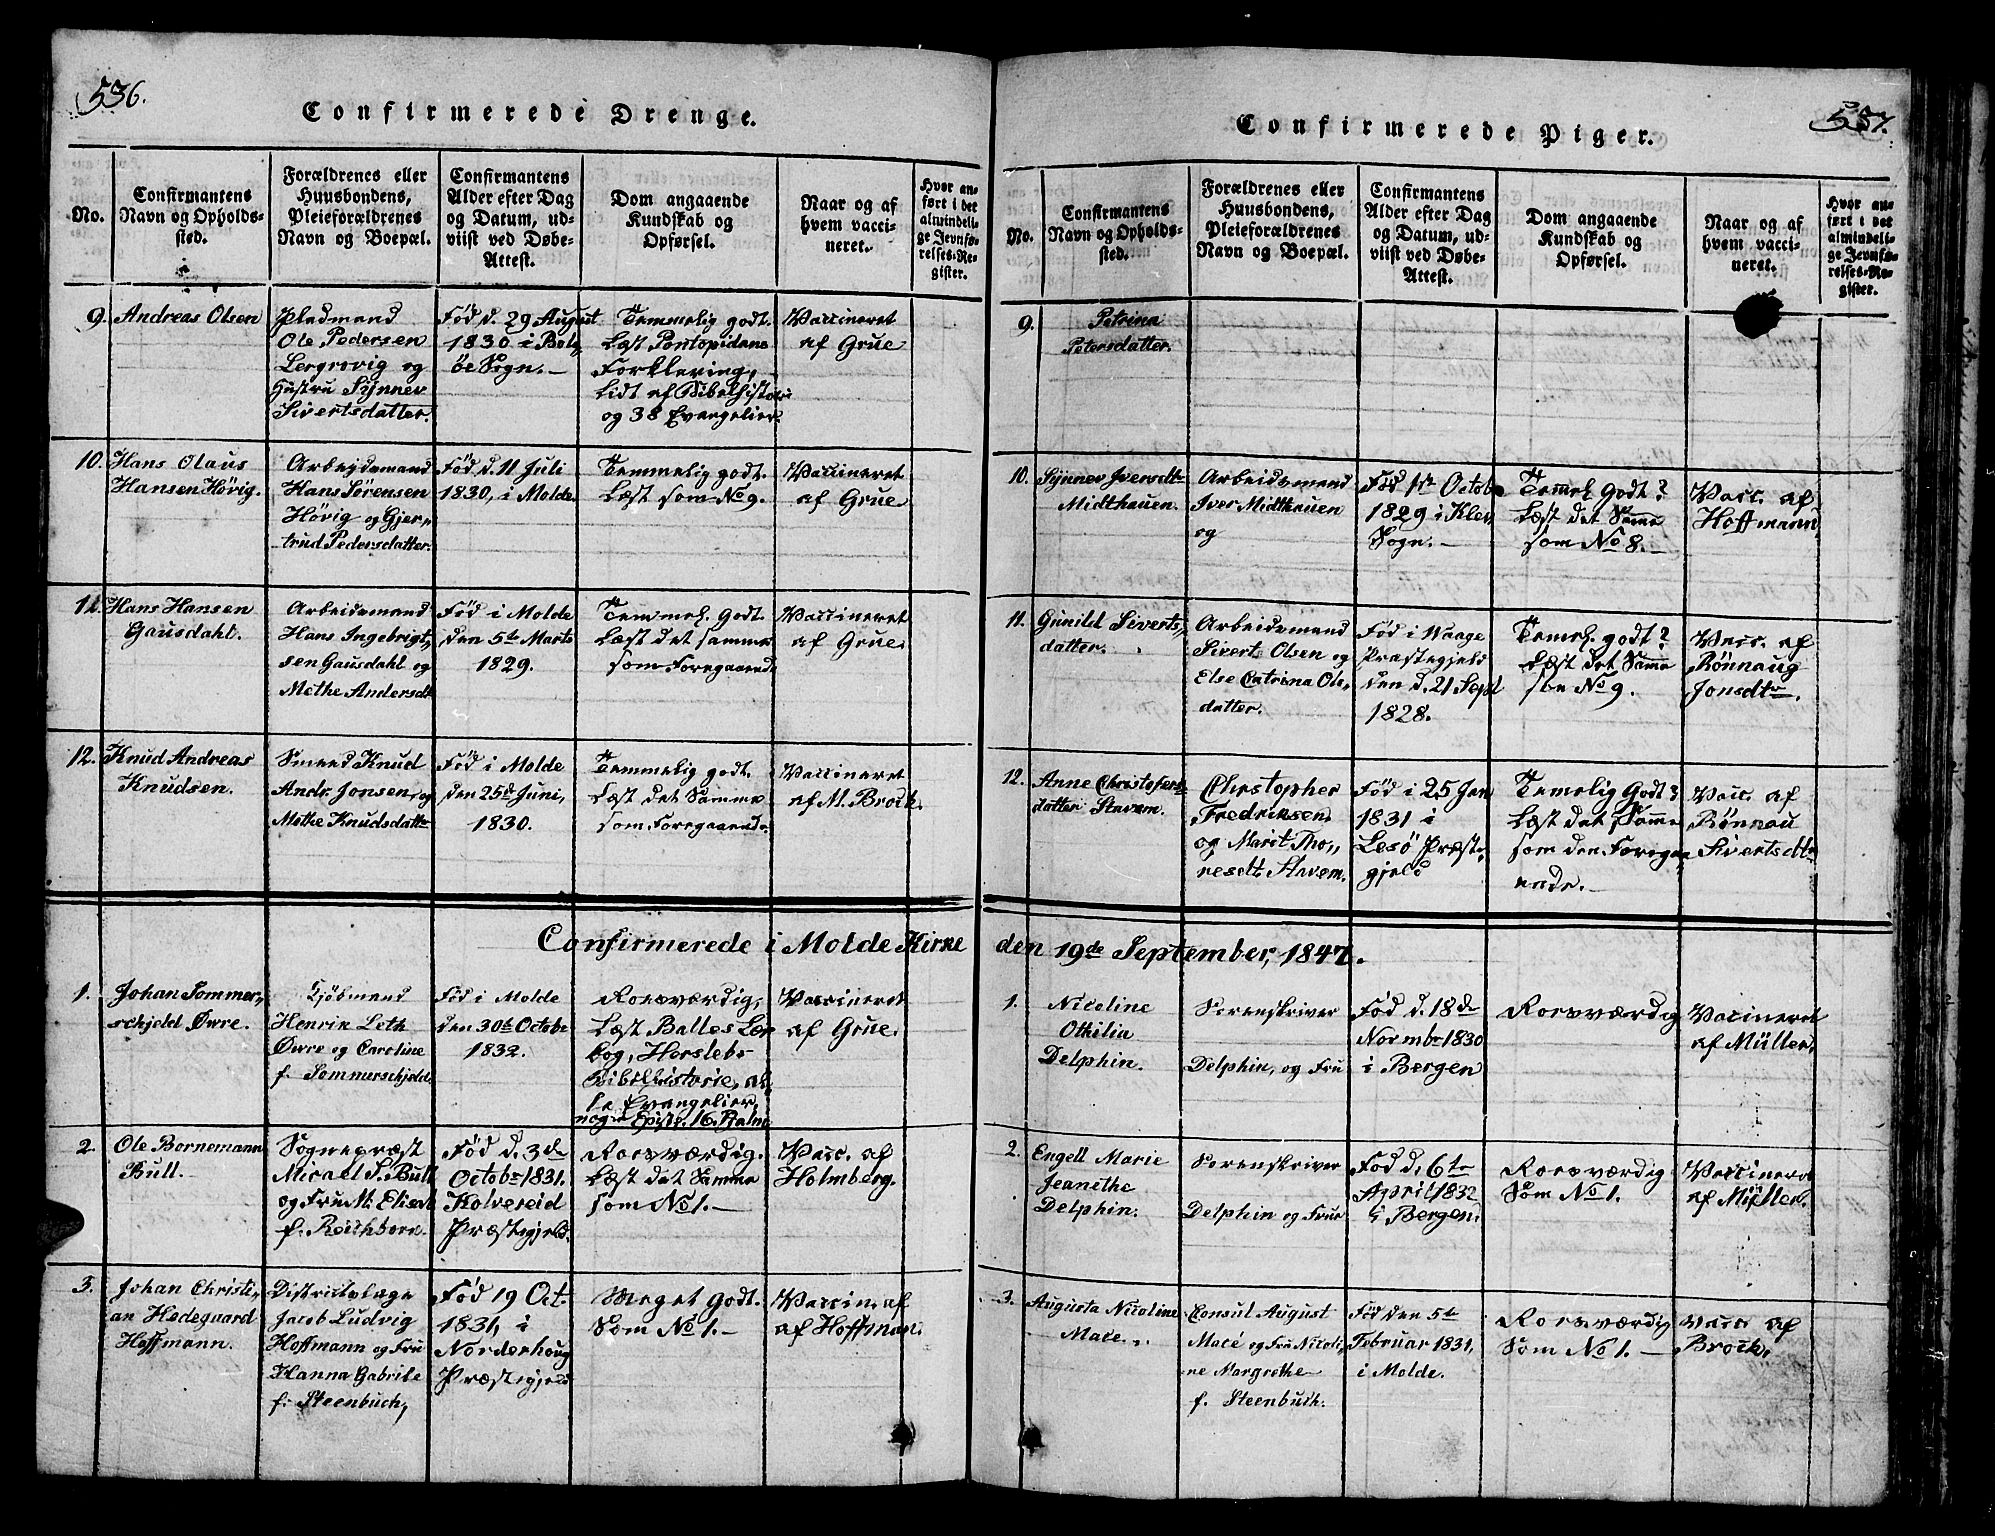 536.
Confirmerede Drenge.
No.
Confirmantens
Navn og Opholds-
sted.
Forældrenes eller
Huusbondens,
Pleieforældrenes
Navn og Boepæl.
Confirmantens
Alder efter Dag
og Datum, ud-
viist ved Døbe-
Attest.
Dom angaaende
Kundskab og
Opførsel.
Naar og af
hvem vacci-
neret.
Hvor an-
ført i det
almindeli-
ge Jevnfø-
relses-Re-
gister.
9.
Andreas Olsen
Pladmand
Ole Pedersen
Lergrovig og
Hustru Synnev
Sivertsdatter.
Fød d. 29 August
1830 i Bols
öe Sogn.-
Temmelig godt.
Læst Pontopidans
Forklaring,
Lidt af Bibelhistori
og 38 Evangelier.
Vaccineret
af Grue
10.
Hans Olaus
Hansen Hövig.
Arbeidsmand
Hans Sörensen
Hövig og Gjer,,
trud Pedersdatter.
Fød d. 11 Juli
1830, i Molde.
Temmelig godt.
Læst som No 9.
Vaccineret
af Grue
11.
Hans Hansen
Gausdahl.
Arbeidsmand
Hans Ingebrigt,,
sen Gausdahl og
Methe Andersdt
Fød i Molde
den 5te Marts
1829.
Temmel. Godt.
Læst det samme
som Foregaaende
Vaccineret
af Grue.
12.
Knud Andreas
Knudsen.
Smeed Knud
Andr. Jonsen, og
Methe Knudsdattr
Fød i Molde
den 25de Juni,
1830.
Temmelig godt.
Læst det Samme
som Foregaaende.
Vaccineret
af M. Brock.
Confirmerede i Molde Kirke
1.
Johan Sommer,,
schjeld Øvre.
Kjöbmand
Henrik Leth
Øvre og Caroline
f. Sommerschjeld
Fød i Molde
den 30te Octobr
1832.
Rosværdig,
Læst Balles Lær
bog, Horslebs
Bibelhistorie, al
le Evangelier,
nogle Epistl. 16. Psalm
Vaccineret
af Grue.
2.
Ole Bornemann
Bull.
Sognepræst
Micael S. Bull
og Fru M. Elisabt
f. Reichborn.
Fød d. 3de
Octobr 1831.
Kolvereid
Præstegjeld.
Rosværdig.
Læst det Samme
som No 1.-
Vacc. af
Holmberg.
3.
Johan Christi,,
an Hedegaard
Hoffmann.
Districtslæge
Jacob Ludvig
Hoffmann og Fru
Hanna Gabriele
f. Steenbuch,
Fød 19 Oct.
1831, i
Norderhoug
Præstegjeld
Meget Godt.
Som No 1.-
Vaccin. af
af Hoffman.
557.
Confirmerede Piger.
No.
Confirmantens
Navn og Opholds-
sted.
Forældrenes eller
Huusbondens,
Pleieforældrenes
Navn og Boepæl.
Confirmantens
Alder efter Dag
og Datum, ud-
viist ved Døbe-
Attest.
Dom angaaende
Kundskab og
Opførsel.
Naar og af
hvem vacci-
neret.
Hvor an-
ført i det
almindeli-
ge Jevnfø-
relses-Re-
gister.
9.
Petrina
Petersdatter.
10.
Synnev Iversdtr
Midthauen.
Arbeidsmand
Iver Midthauen
og
Fød 1ste Octobr
1829 i Klev
Sogn.-
Temmel. Godt?
Læst det Samme
som No 8.-
Vacc. af
Hoffmann
11.
Gunild Siverts,,
datter.
Arbeidsmand
Sivert Olsen og
Else Catrina Ols,
datter.
Fød i Waage
Præstegjeld
den d. 21 Sept
1828.
Temel. godt?
Læst det Samme
som No 9.
Vacc. af
Rönnaug
Jonsdtr.
12.
Anne Christofers
datter Stavem.
Christopher
Fredriksen,
og Marit Tho,,
resdt Stavem.
Fød i 25 Jan
1831 i
Lesö Præste,
gjeld
Temelig Godt?
Læst det Samme
som den Foregaa,
ende.-
Vacc. af
Rönnau
Sivertsdtr
den 19de September, 1847.
1.
Nicoline
Othilia
Delphin.
Sorenskriver
Delphin, og Fru
Fød d. 18de
Novmbr 1830
i Bergen
Rosværdig
Vaccineret
af Müller.
2.
Engell Marie
Jeanethe
Delphin.
Sorenskriver
Delphin og Frue
Fød d. 6te
April 1832
i Bergen.
Rosværdig
Som No 1.
Vaccineret
af Müller.
3.
Augusta Nicoline
Mace.
Consul August
Macé og Fru Nicoli,
ne Margrethe
f. Steenbuch.
Fød den 5te
Februar 1831,
i Molde.
Rosværdig
Som No 1.-
Vacc af
Brock.